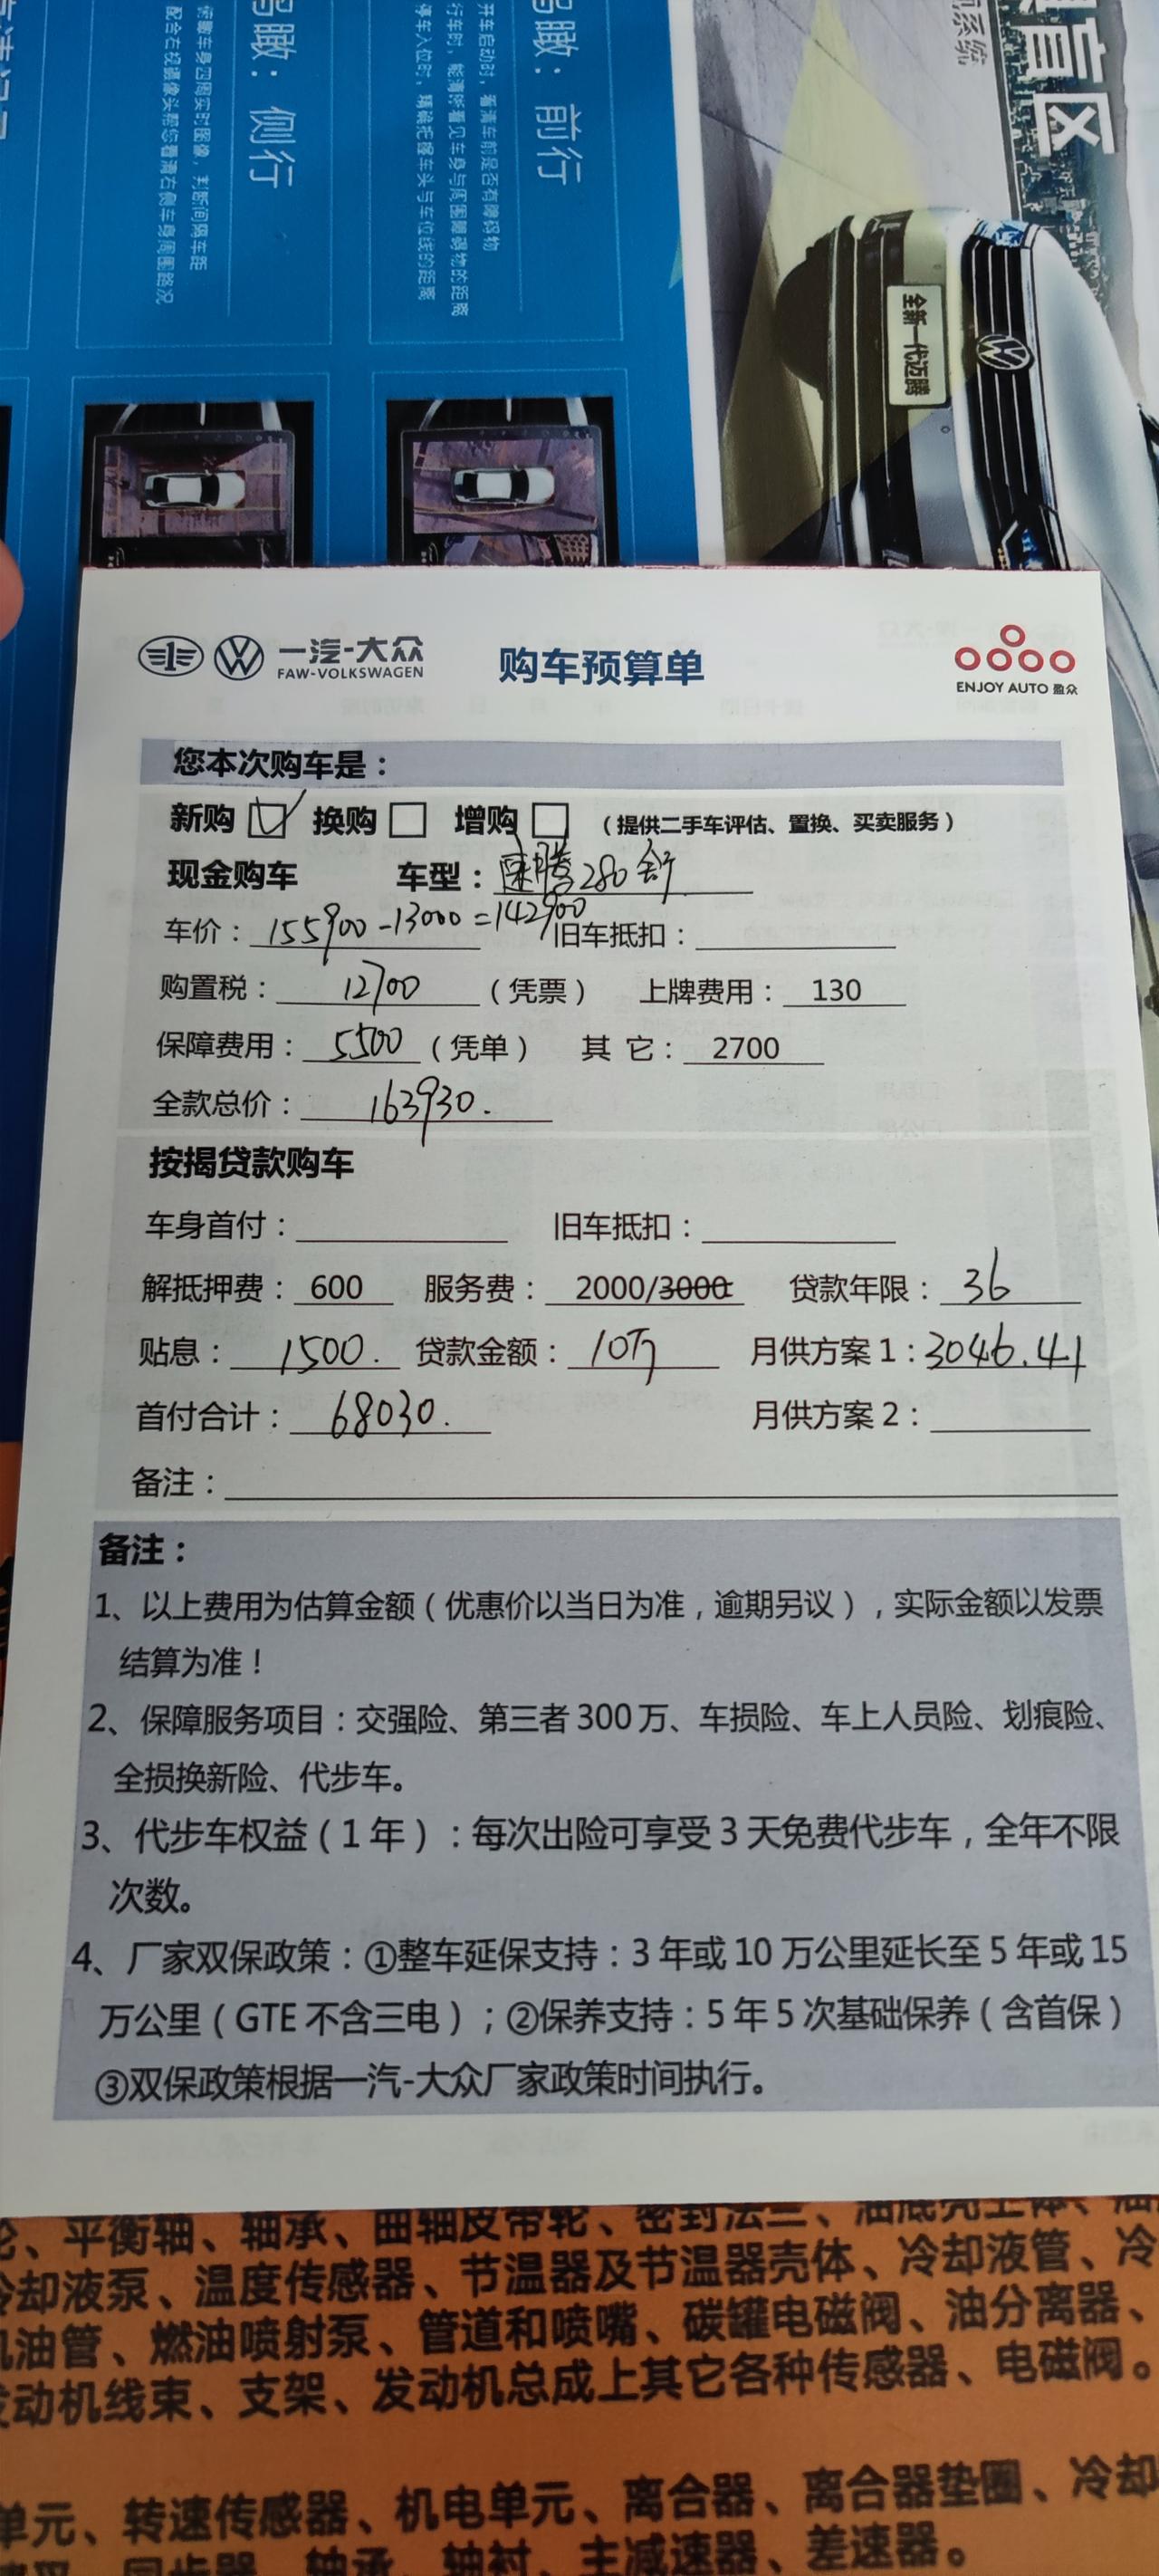 盲区
鸟瞰：前行
开车启动时，看清车前是否有障碍物
行车时，能清晰看见车身与周围障碍物的距离
停车入位时，精确把握车头与车位线的距离
鸟瞰：侧行
俯瞰车身四周实时图像，判断间隔车距
配合右视摄像头帮您看清右侧车身周围路况
全新一代迈腾
一汽-大众
FAW-VOLKSWAGEN
购车预算单
ENJOY AUTO 盈众
您本次购车是：
新购 ☑ 换购 □ 增购 □ （提供二手车评估、置换、买卖服务）
现金购车 车型：速腾280舒
车价：155900-13000=142900 旧车抵扣：
购置税：12700（凭票） 上牌费用：130
保障费用：5500（凭单） 其 它：2700
全款总价：163930.
按揭贷款购车
车身首付： 旧车抵扣：
解抵押费：600 服务费：2000/3000 贷款年限：36
贴息：1500. 贷款金额：10万 月供方案1：3046.41
首付合计：68030. 月供方案2：
备注：
备注：
1、以上费用为估算金额（优惠价以当日为准，逾期另议），实际金额以发票
结算为准！
2、保障服务项目：交强险、第三者300万、车损险、车上人员险、划痕险、
全损换新险、代步车。
3、代步车权益（1年）：每次出险可享受3天免费代步车，全年不限
次数。
4、厂家双保政策：①整车延保支持：3年或10万公里延长至5年或15
万公里（GTE不含三电）；②保养支持：5年5次基础保养（含首保）
③双保政策根据一汽-大众厂家政策时间执行。
、平衡轴、轴承、曲轴皮带轮、密封法兰、油底壳主体、
冷却液泵、温度传感器、节温器及节温器壳体、冷却液管、冷
机油管、燃油喷射泵、管道和喷嘴、碳罐电磁阀、油分离器、
发动机线束、支架、发动机总成上其它各种传感器、电磁阀。
单元、转速传感器、机电单元、离合器、离合器垫圈、冷却
、同步器、轴承、轴衬、主减速器、差速器。